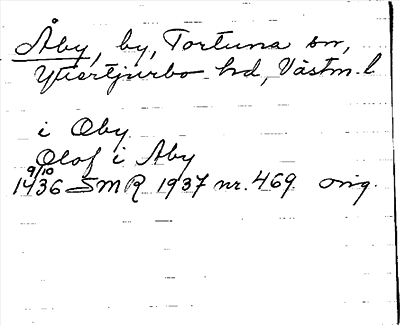 Åby, by, Tortuna sn,
Yttertjurbo hd, Västm. l
i Oby
Olof i Aby
9/10
1436 SMR 1937 nr. 469 orig.